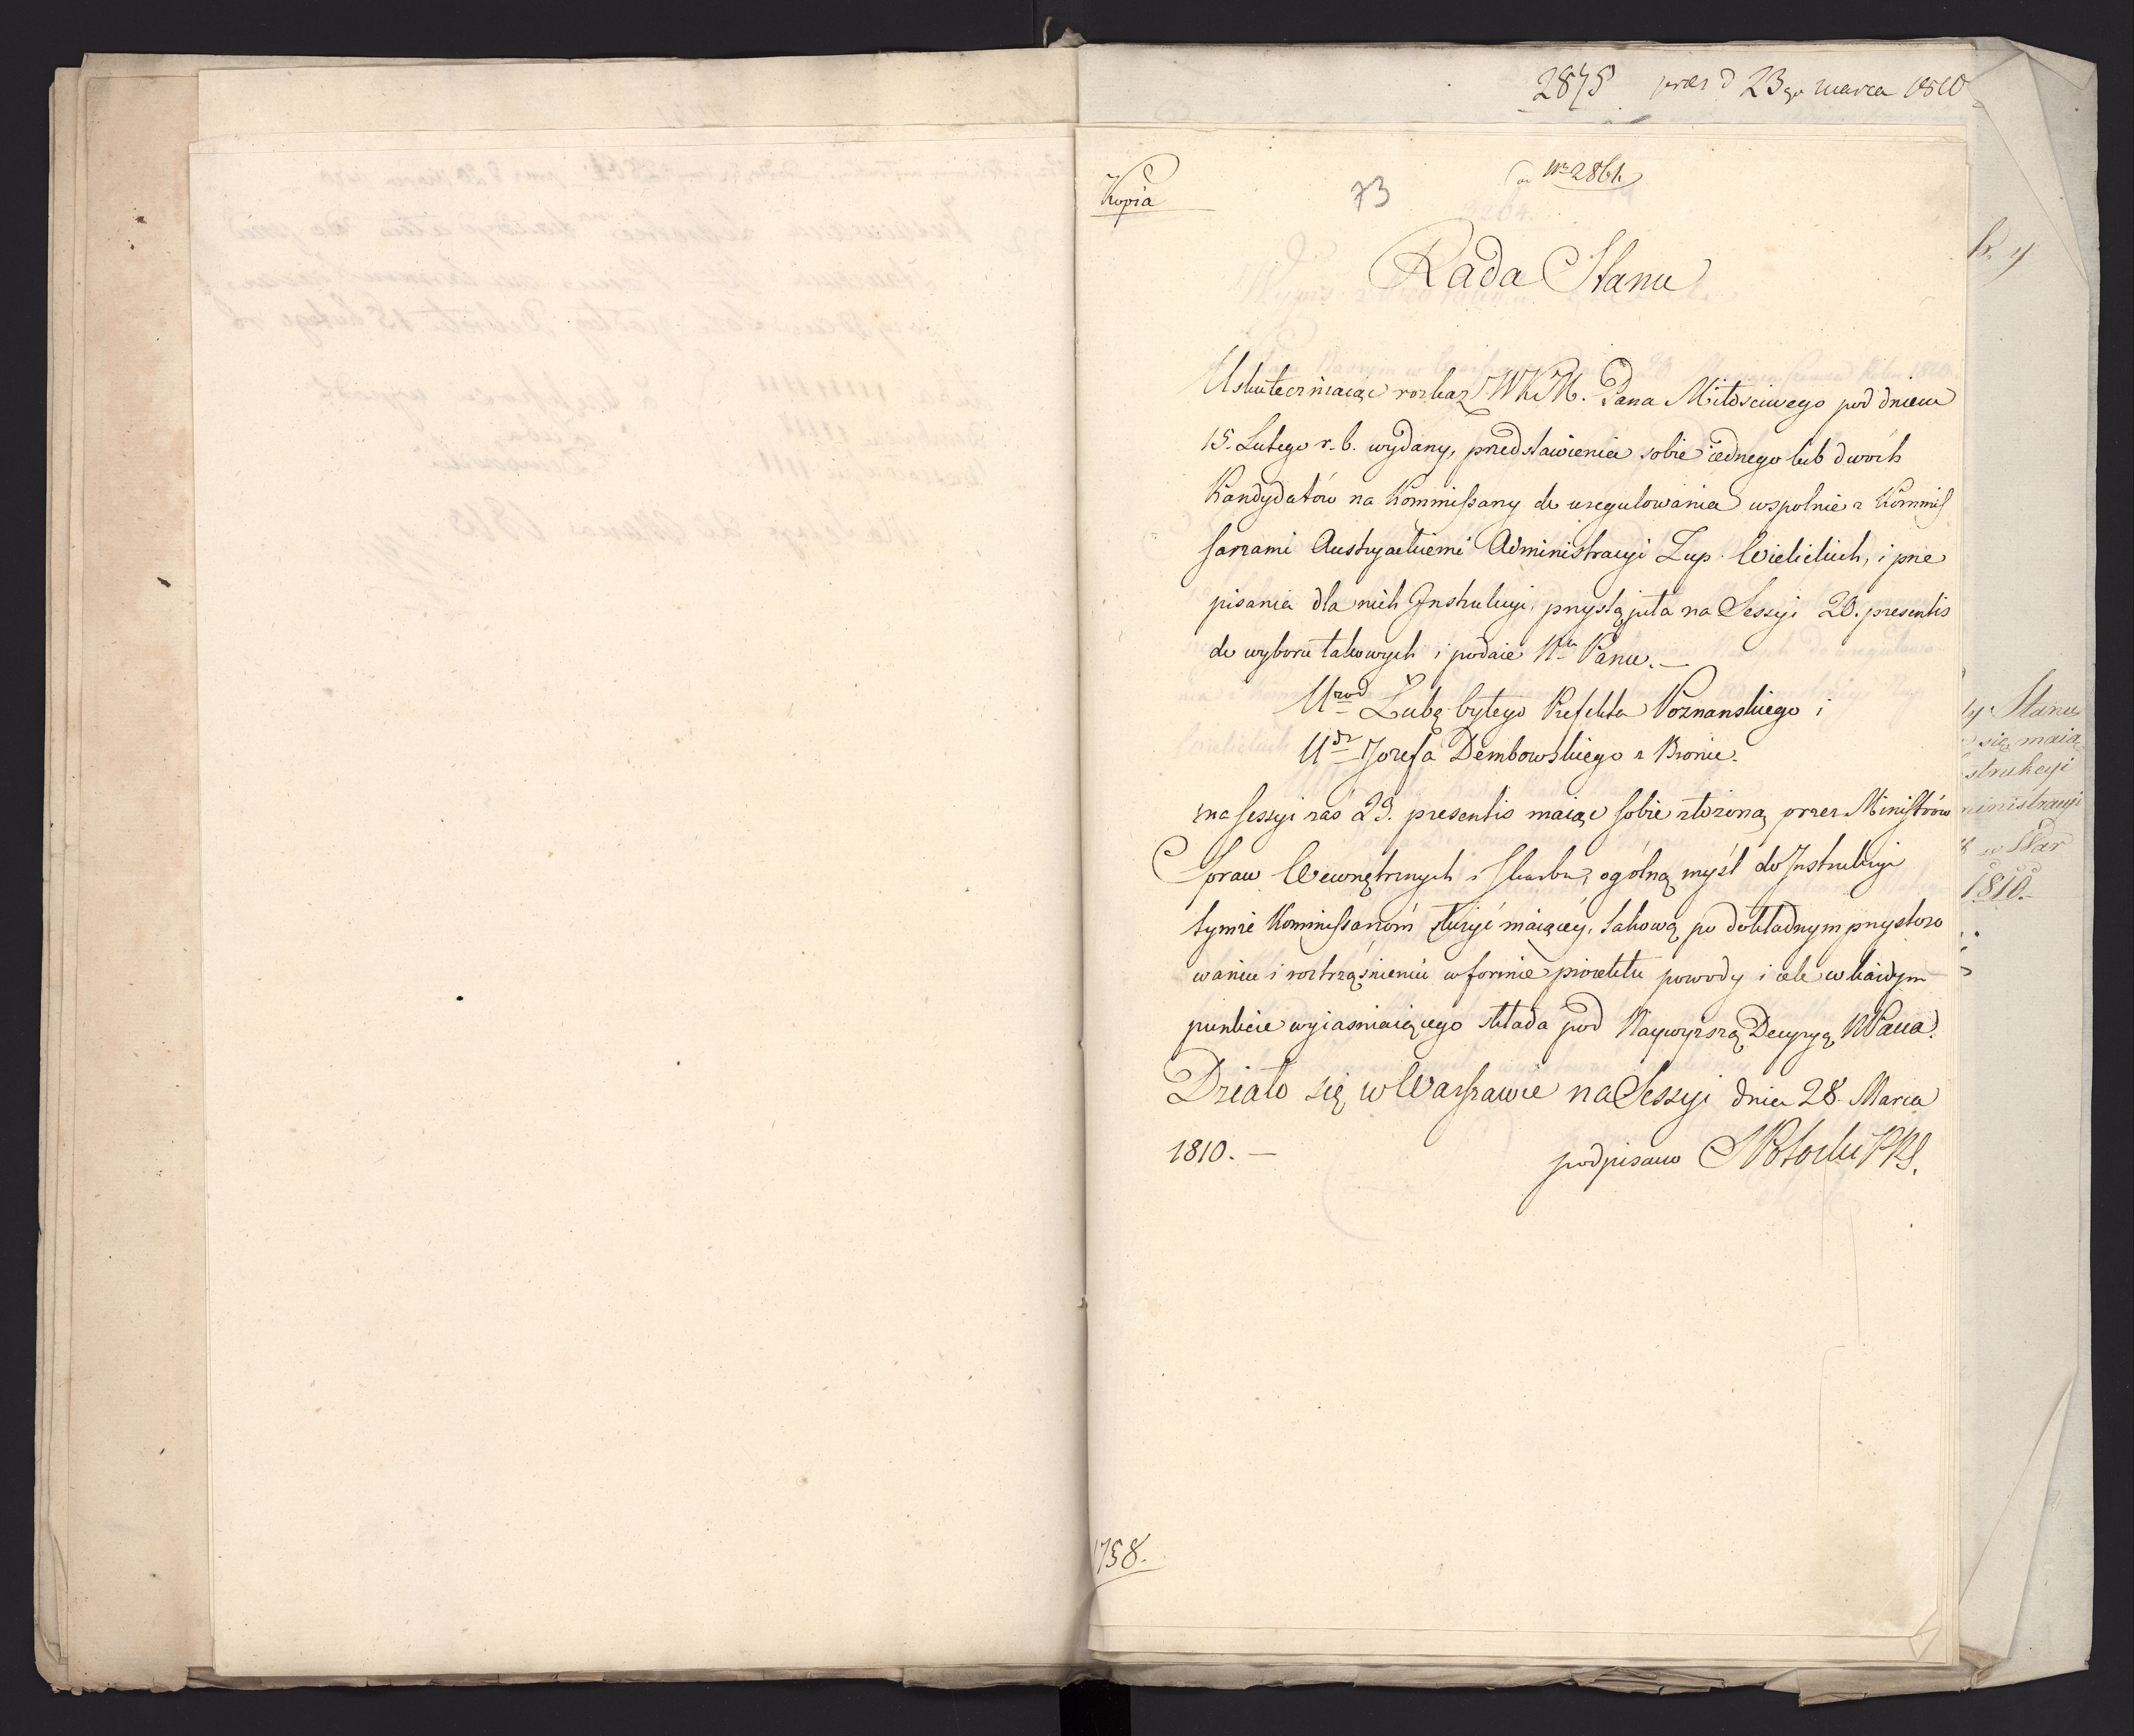 2875 prez d 23go marca 1810
Kopia
73
ad Nro 2864
Rada Stanu
Uskuteczniaiąc rozkaz W.K.M. Pana Miłościwego pod dniem
15. Lutego r. b. wydany, przedstawienia sobie iednego lub dwóch
Kandydatów na Kommissarzy do uregulowania wspolnie z Kommis
sarzami Austryackiemi Administracyi Żup Wielickich, i prze
pisania dla nich Instrukcyi, przystąpiła na Sessyi 20. presentis
do wyboru takowych i podaie Nmu Panu. —
Urod Łubę byłego Prefekta Poznanskiego i
Ur Jozefa Dembowskiego z Bronic.
na sessyi zaś 23. presentis maiąc sobie złożoną przez Ministrów
Spraw Wewnętrznych i Skarbu, ogólną myśl do Instrukcyi
tymże Kommissarzom służyć maiącey, takową po dokładnym przystoso
waniu i roztrząśnieniu w formie proiektu powody i cele w każdym
punkcie wyiasniaiącego składa pod Naywyższą Decyzyą NPana.
Działo się w Warszawie na Sessyi dnia 28. Marca
1810. —
podpisano S Potocki PRS.
1758.
ty Stanu
się maią
strukcyi
ministracyi
w War
1810.